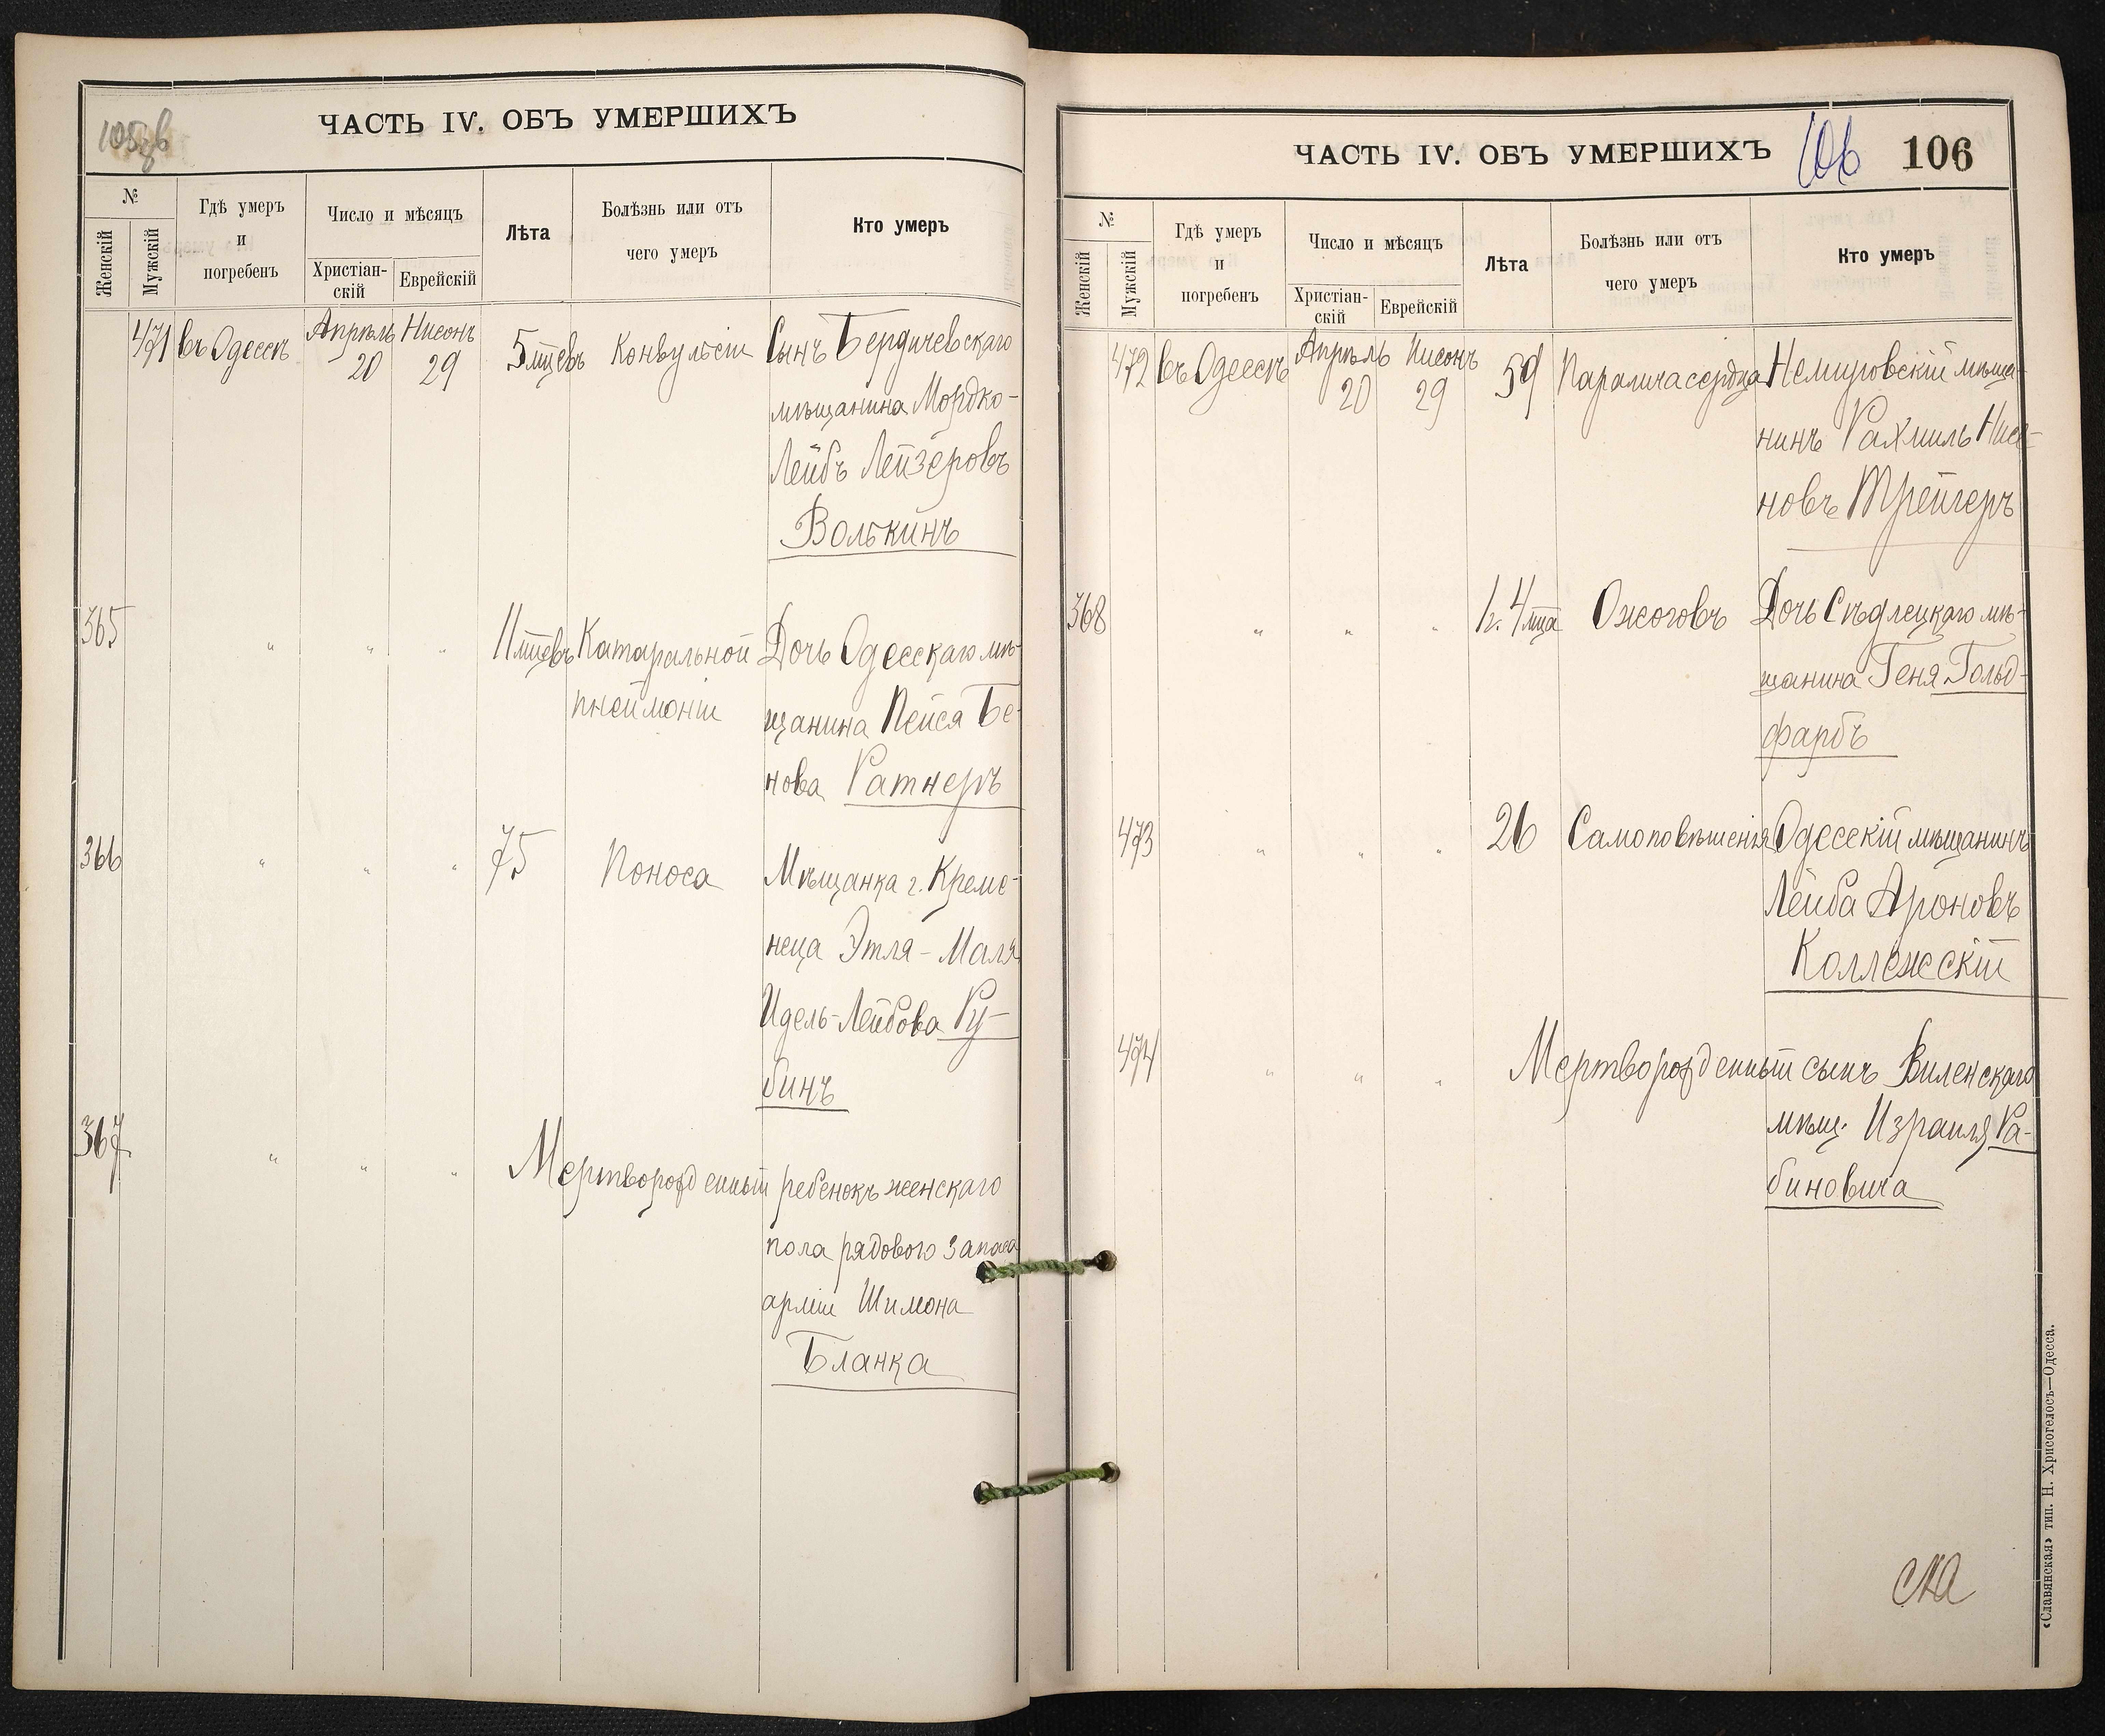 105 об
ЧАСТЬ IV. ОБЪ УМЕРШИХЪ
№
Женскій
Мужскій
Гдѣ умеръ
и
погребенъ
Число и мѣсяцъ
Христіан-
скій
Еврейскій
Лѣта
Болѣзнь или отъ
чего умеръ
Кто умеръ
471 въ Одессѣ Апрѣль 20 Нисонъ 29 5 мцевъ Конвульсіи Сынъ Бердичевскаго
мѣщанина Мордко-
Лейбъ Лейзеровъ
Волькинъ
365 " " " 11 мцевъ Катаральной Дочь Одесскаго мѣ-
пнеймоніи щанина Пейся Бе-
нова Ратнеръ
366 " " " 75 Поноса Мѣщанка г. Креме-
неца Этля-Маля
Идель-Лейбова Ру-
бинъ
367 " " " Мертворожденный ребенокъ женскаго
пола рядового запаса
арміи Шимона
Бланка
ЧАСТЬ IV. ОБЪ УМЕРШИХЪ 106 106
№
Женскій
Мужскій
Гдѣ умеръ
и
погребенъ
Число и мѣсяцъ
Христіан-
скій
Еврейскій
Лѣта
Болѣзнь или отъ
чего умеръ
Кто умеръ
472 въ Одессѣ Апрѣль 20 Нисонъ 29 59 Паралича сердца Немировскій мѣща-
нинъ Рахмиль Нисе-
новъ Трейгеръ
368 " " " 1 г. 4 мца Ожоговъ Дочь Сѣдлецкаго мѣ-
щанина Геня Гольд-
фарбъ
473 " " " 26 Самоповѣшенія Одесскій мѣщанинъ
Лейба Ароновъ
Коллежскій
474 " " " Мертворожденный сынъ Виленскаго
мѣщ. Израиля Ра-
биновича
«Славянская» тип. Н. Хрисогелосъ—Одесса.